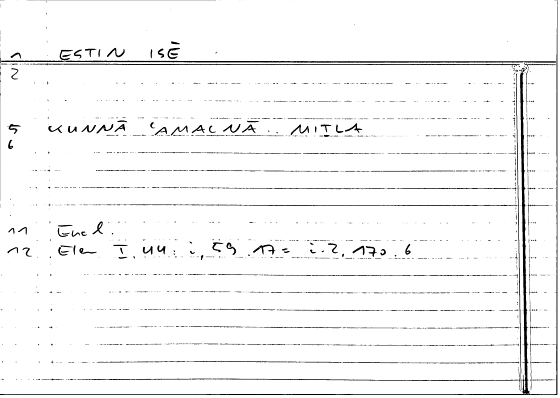 1 ESTIN ISĒ
2
5 KUNNĀ ʿAMALNĀ .. MIṮLA
6
11 Eucl.
12 Elem I. 44: i, 59. 17 = i. 2, 170. 6